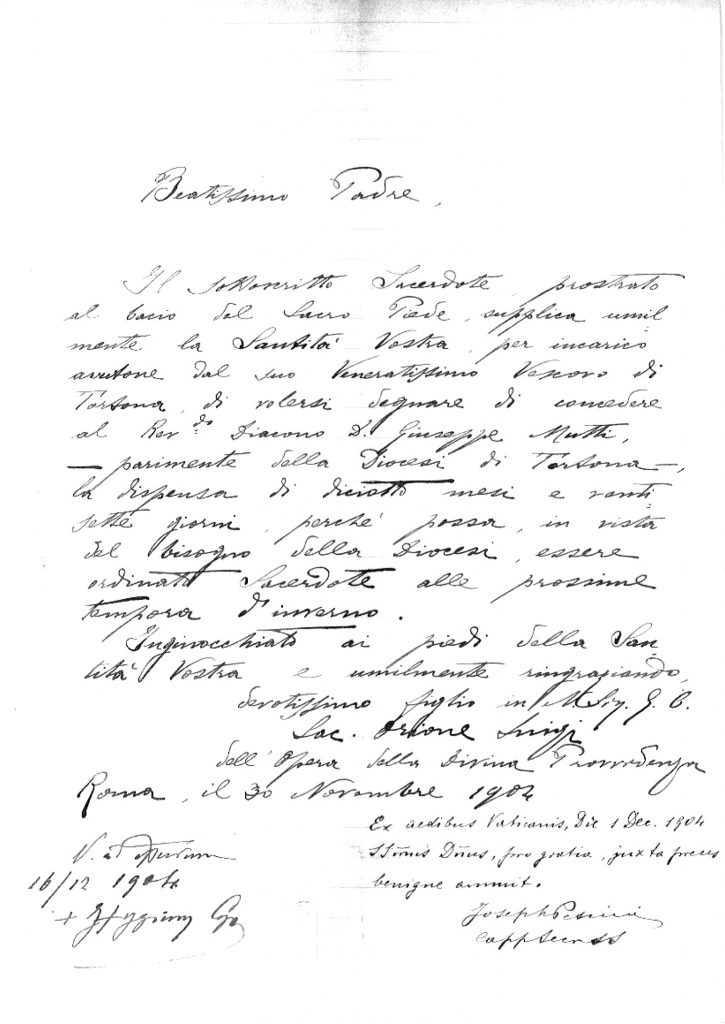 Beatissimo Padre,
Il sottoscritto Sacerdote, prostrato
al bacio del Sacro Piede, supplica umil
mente la Santità Vostra, per incarico
avutone dal suo Veneratissimo Vescovo di
Tortona, di volersi degnare di concedere
al Rev.do Diacono D. Giuseppe Mutti,
— parimente della Diocesi di Tortona —,
la dispensa di diciotto mesi e venti
sette giorni, perché possa, in vista
del bisogno della Diocesi, essere
ordinato Sacerdote alle prossime
tempora d'inverno.
Inginocchiato ai piedi della San
tità Vostra e umilmente ringraziando,
devotissimo figlio in M. SS. e G. C.
Sac. Orione Luigi
dell'Opera della Divina Provvidenza
Roma, il 30 Novembre 1904
Ex aedibus Vaticanis, Die 1 Dec. 1904
SSmus Dnus, pro gratia, juxta preces
benigne annuit.
Joseph Pescini
V. ad
16/12 1904
+ Hyginus